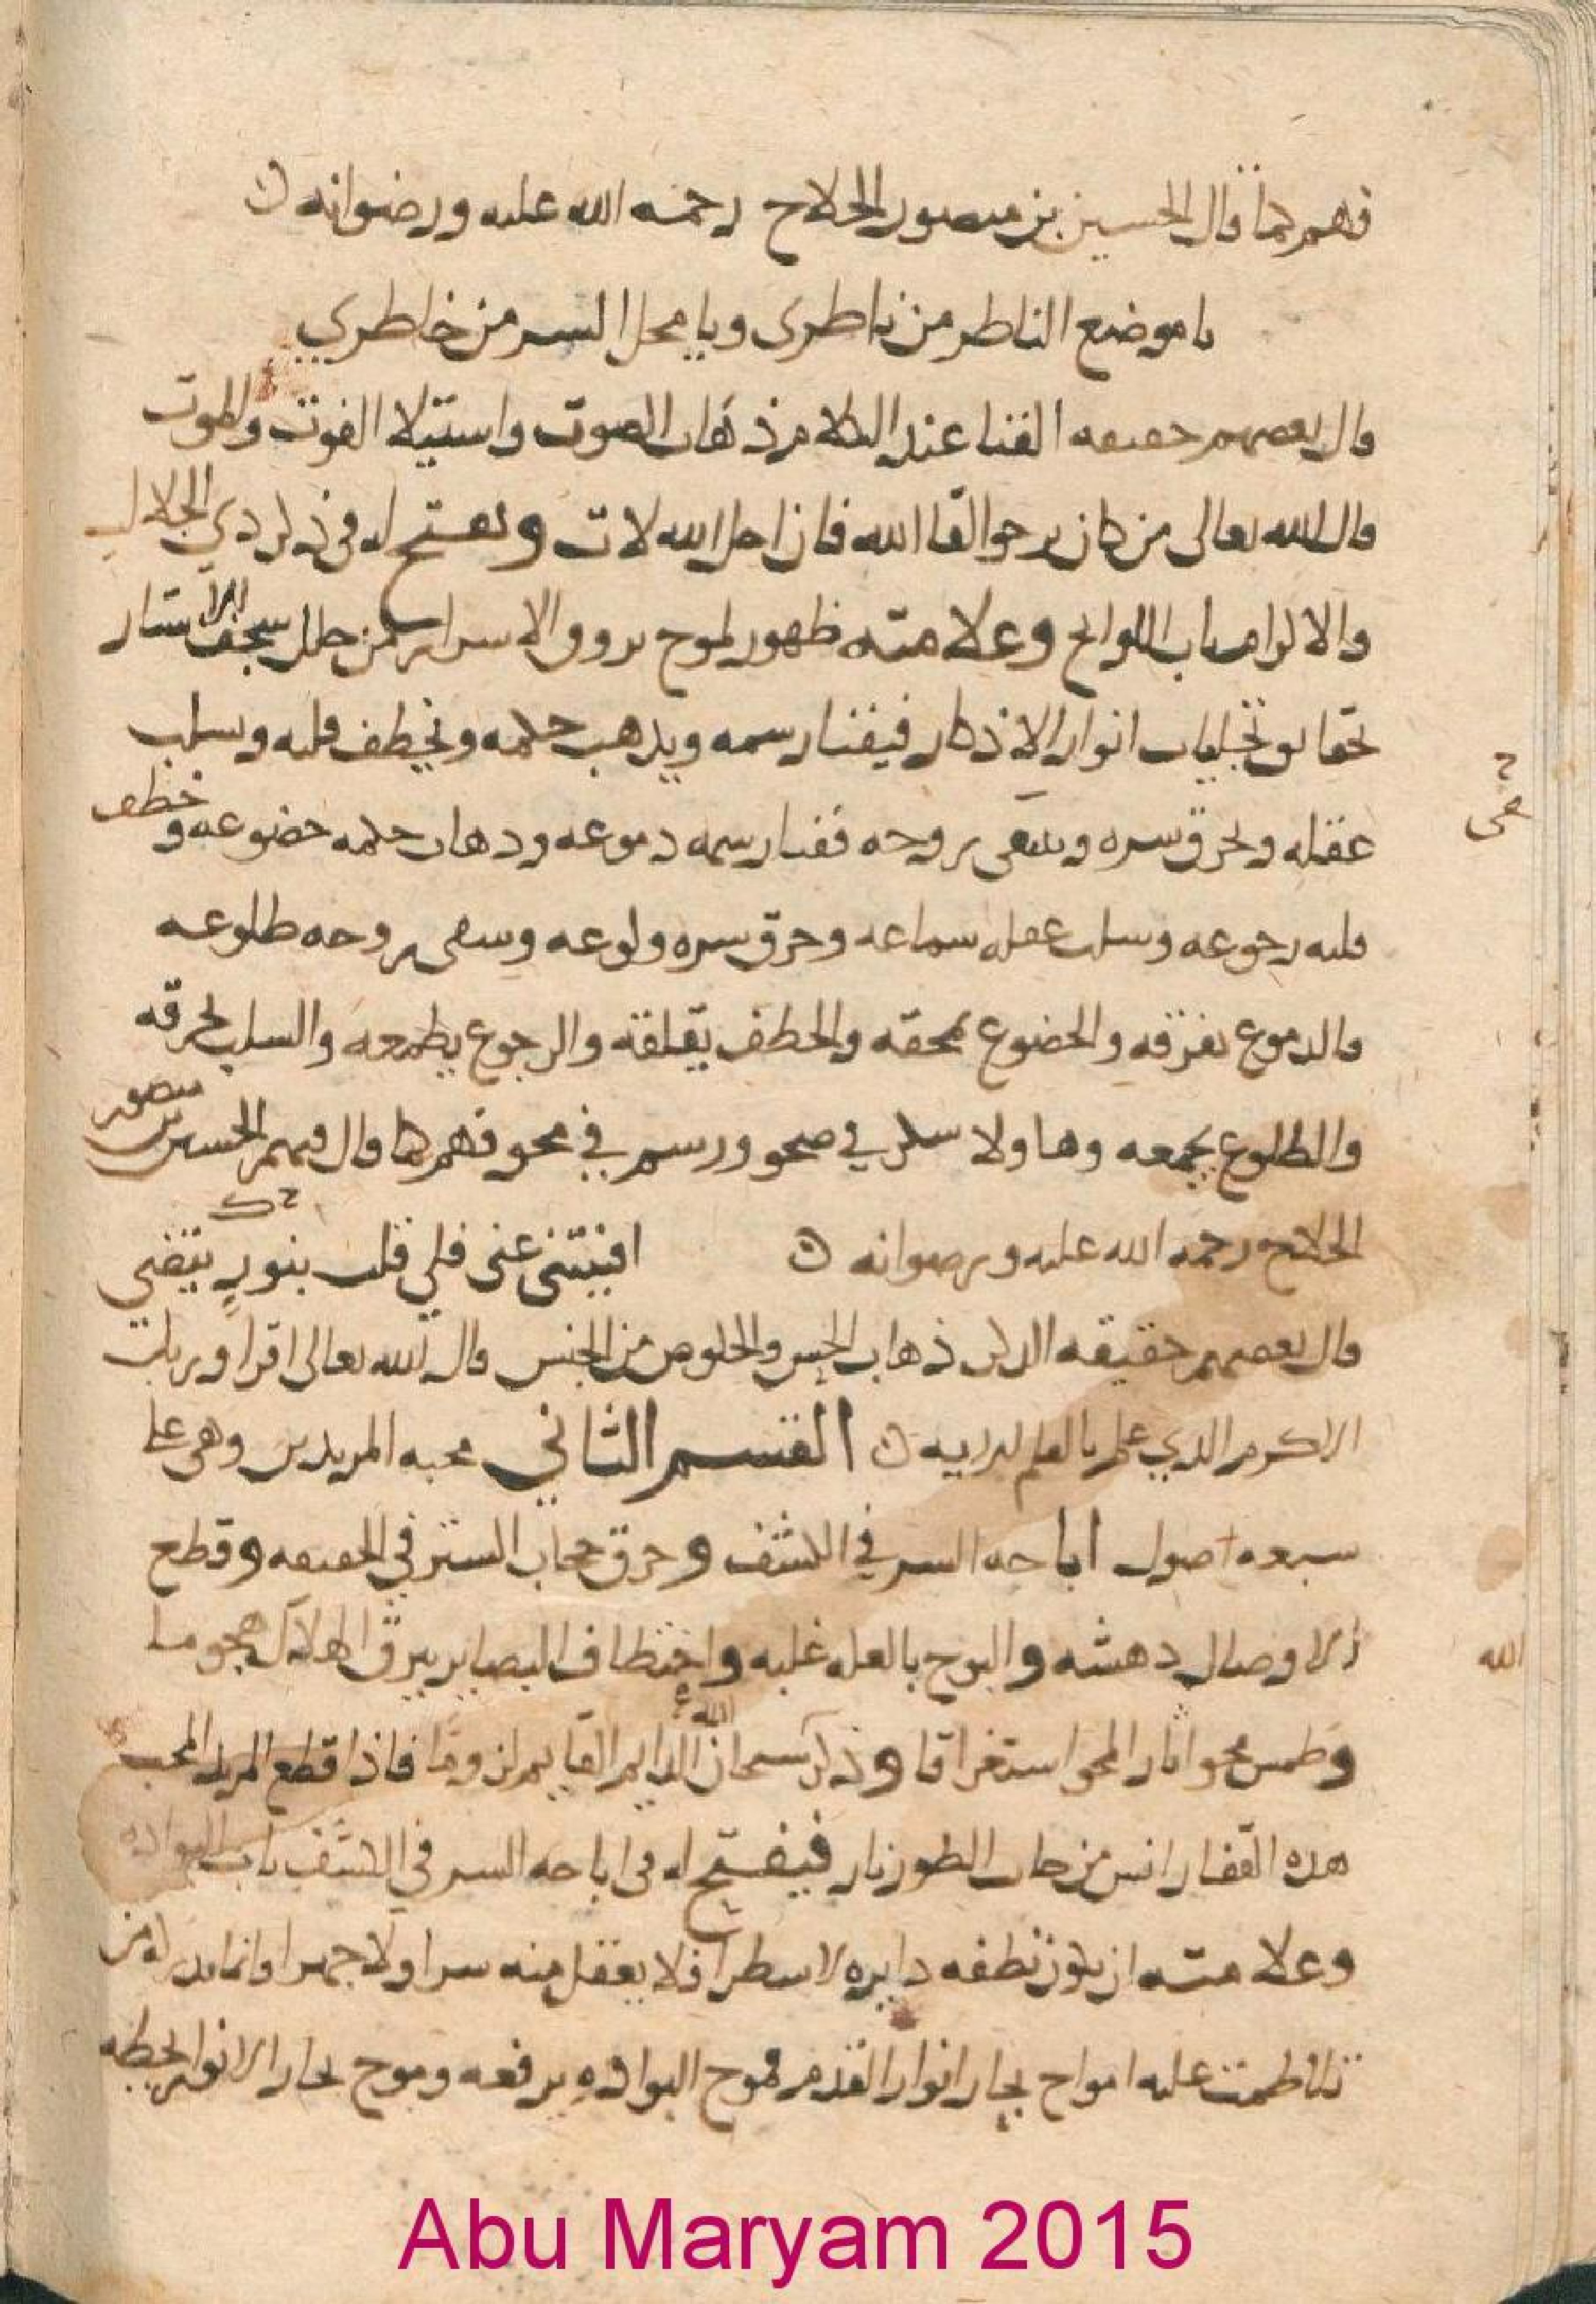 فهم كما قال الحسين بن منصور الحلاج رحمه الله عليه ورضوانه
يا موضع الناظر من ناظري ويا محل السر من خاطري
قال بعضهم حقيقه الفنا عند الكلام ذهاب الصوت واستيلا الفوت والموت
قال الله تعالى من كان يرجوا لقا الله فان اجل الله لات ويفتح له في ذكر ذي الجلال
والاكرام باب اللوايح وعلامته ظهور لموح بروق الاسرار من خلل سجف الاستار
بحقايق تجليات انوار الاذكار فيفنا رسمه ويذهب حكمه ويخطف قلبه ويسلب
عقله ويحرق سره ويبقى بروحه ففنا رسمه دموعه وذهاب حكمه خضوعه وخطف
قلبه رجوعه وسلب عقله سماعه وحرق سره ولوعه وروحه طلوعه
فالدموع تغرقه والخضوع يمحقه والخطف يقلقه والرجوع يطمعه والسلب يحرقه
والطلوع يجمعه وهاولا سكر في صحو ورسم في محو فهم كما قال فيهم الحسين بن منصور
الحلاج رحمه الله عليه ورضوانه افنيتني عني فلي قلب بنور
قال بعضهم حقيقه الذكر ذهاب الحس والخلوص من الجنس قال الله تعالى اقرا وربك
الاكرم الذي علم بالقلم القسم الثاني محبه المريدين وهي على
سبعه اصول اباحه السر في الكشف وخرق حجاب الستر في الحقيقه وقطع
الاوصال دهشه والبوح بالعله غلبه واختطاف البصاير ببرق الهلاك هجوما
وطمس محو اثار المحو استغراقا وذكر الله سبحانه الدايم القايم فاذا قطع المريد المحب
هذه القفار فيفتح له في اباحه السر في الكشف باب البواده
وعلامته ان يكون نطفه دايره لا سطرا فلا يعقل منه سرا ولا جهرا وانما
تلاطمت عليه امواج بحار انوار القدم فموج البواده يرفعه وموج بحار الانوار يحطه
الله
Abu Maryam 2015